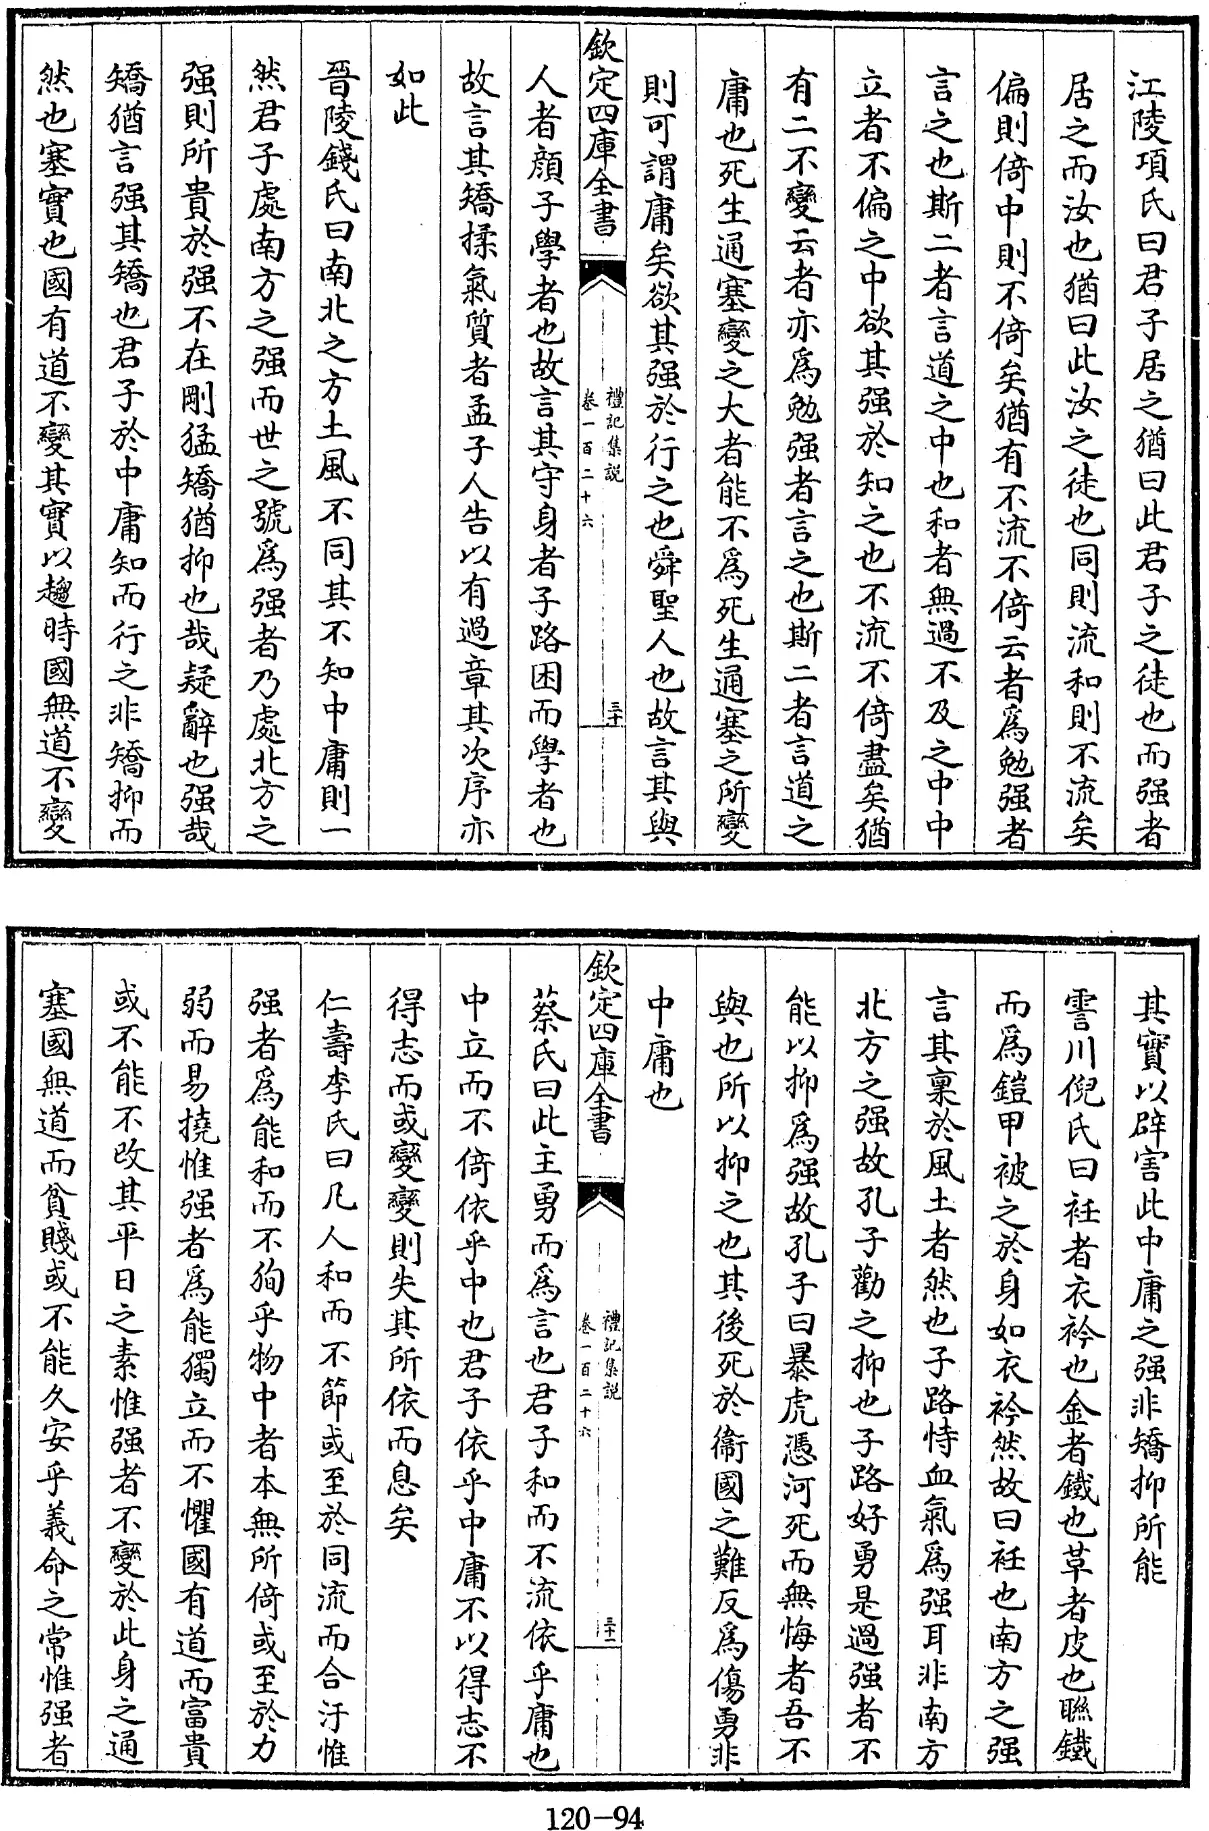 江陵項氏曰君子居之猶曰此君子之徒也而强者
居之而汝也猶曰此汝之徒也同則流和則不流矣
偏則倚中則不倚矣猶有不流不倚云者爲勉强者
言之也斯二者言道之中也和者無過不及之中中
立者不偏之中欲其强於知之也不流不倚盡矣猶
有二不變云者亦爲勉强者言之也斯二者言道之
庸也死生通塞變之大者能不爲死生通塞之所變
則可謂庸矣欲其强於行之也舜聖人也故言其與
欽定四庫全書
禮記集説
卷一百二十六
三十
人者顔子學者也故言其守身者子路困而學者也
故言其矯揉氣質者孟子人告以有過章其次序亦
如此
晉陵錢氏曰南北之方土風不同其不知中庸則一
然君子處南方之强而世之號爲强者乃處北方之
强則所貴於强不在剛猛矯猶抑也哉疑辭也强哉
矯猶言强其矯也君子於中庸知而行之非矯抑而
然也塞實也國有道不變其實以趨時國無道不變
其實以辟害此中庸之强非矯抑所能
霅川倪氏曰衽者衣衿也金者鐵也革者皮也聯鐵
而爲鎧甲被之於身如衣衿然故曰衽也南方之强
言其稟於風土者然也子路恃血氣爲强耳非南方
北方之强故孔子勸之抑也子路好勇是過强者不
能以抑爲强故孔子曰暴虎憑河死而無悔者吾不
與也所以抑之也其後死於衞國之難反爲傷勇非
中庸也
欽定四庫全書
禮記集説
卷一百二十六
三十一
蔡氏曰此主勇而爲言也君子和而不流依乎庸也
中立而不倚依乎中也君子依乎中庸不以得志不
得志而或變變則失其所依而息矣
仁壽李氏曰凡人和而不節或至於同流而合汙惟
强者爲能和而不徇乎物中者本無所倚或至於力
弱而易撓惟强者爲能獨立而不懼國有道而富貴
或不能不改其平日之素惟强者不變於此身之通
塞國無道而貧賤或不能久安乎義命之常惟强者
120-94